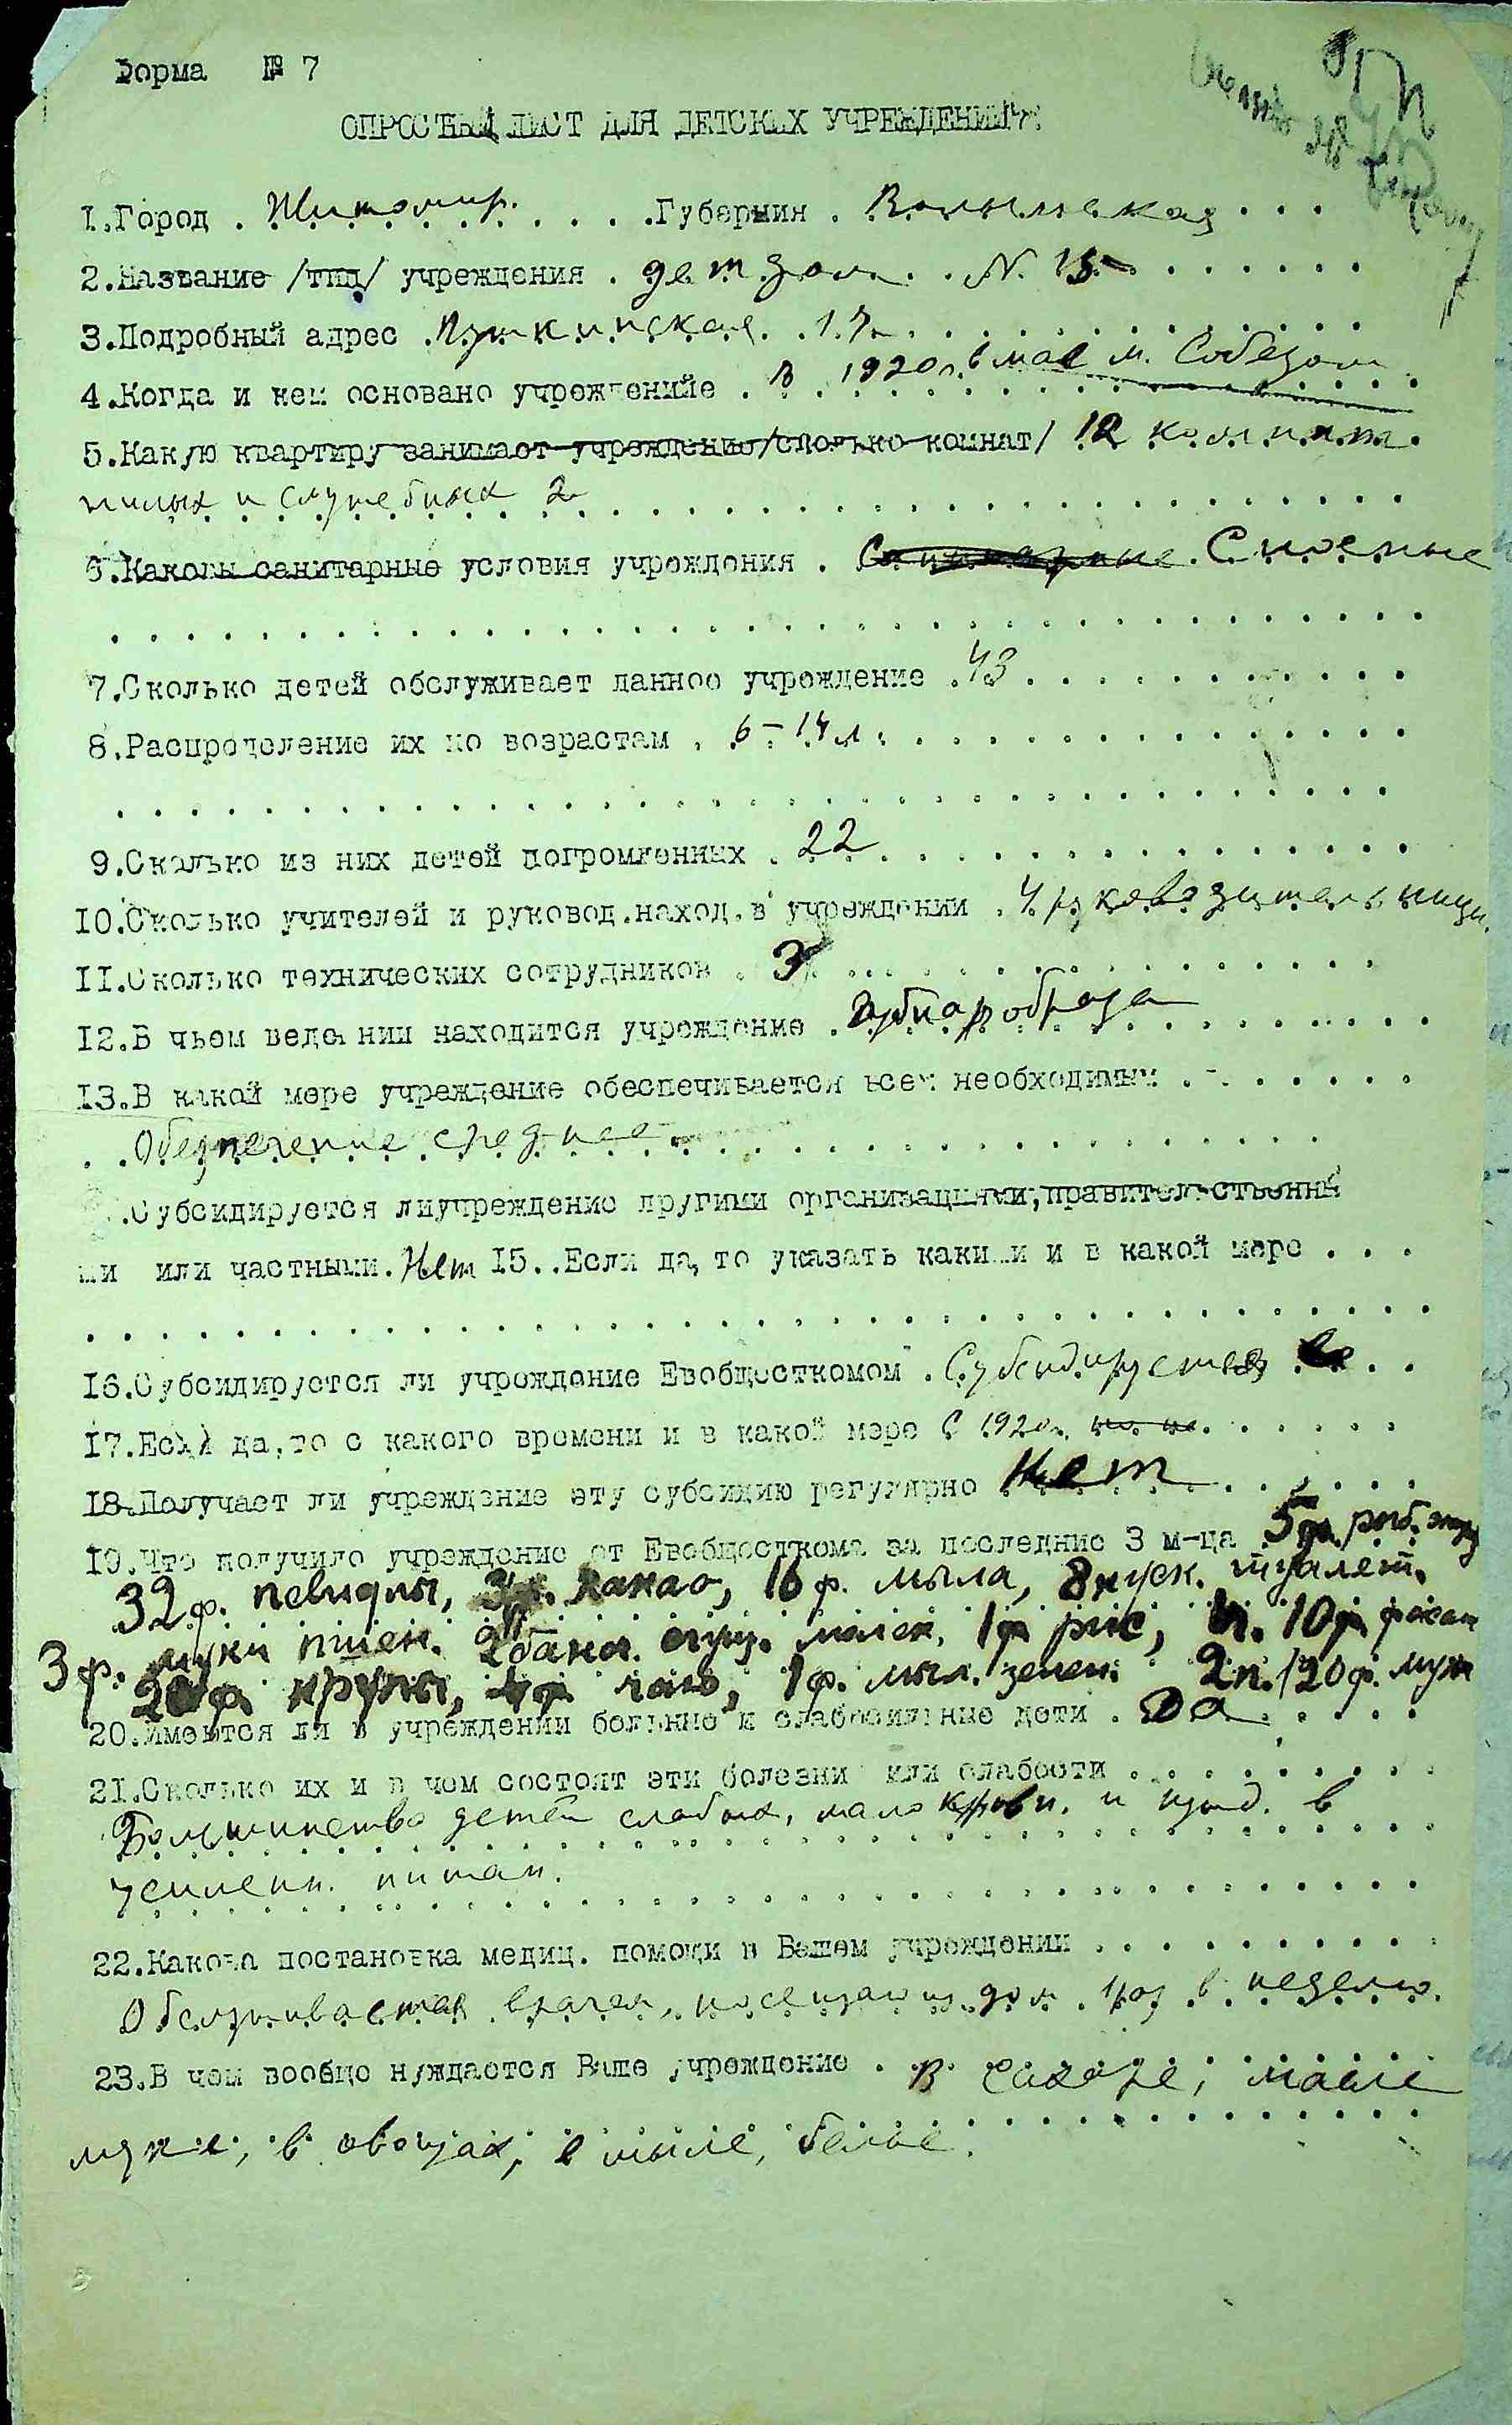 Форма № 7
ОПРОСНЫЙ ЛИСТ ДЛЯ ДЕТСКИХ УЧРЕЖДЕНИЙ
1.Город . Житомир. . . . .Губернии . Волынская . . .
2.Название /тип/ учреждения . детдом . . N. 15 . . . . . . .
3.Подробный адрес . Пушкинская . . 17 . . . . . . . . .
4.Когда и кем основано учреждение . В . 1920 г. в мае м. Собезом
5.Какую квартиру занимает учреждение/сколько комнат/ 12 комнат.
жилых и служебных 2
6.Каковы санитарные условия учреждения . Санитарные . Сносные
7.Сколько детей обслуживает данное учреждение . 43 . . . . . . . . . . .
8.Распределение их по возрастам . 6 – 14 л. . . . . . . . . . . . . . .
9.Сколько из них детей погромленных . 22 . . . . . . . . . . . . . .
10.Сколько учителей и руковод.наход.в учреждении . 4 руководительницы.
11.Сколько технических сотрудников . 3 . . . . . . . . . . . . . .
12.В чьем ведении находится учреждение . Губнаробраза . . . . . .
13.В какой мере учреждение обеспечивается всем необходимым . . . . . . . .
. . Обезпечение среднее . . . . . . . . . . . . . .
.Субсидируется лиучреждение другими организациями,правительственны
ми или частными. Нет 15. .Если да, то указать какими и в какой мере . . .
16.Субсидируется ли учреждение Евобщесткомом . Субсидируется . . .
17.Если да,то с какого времени и в какой мере С 1920 г. . . . . . .
18.Получает ли учреждение эту субсидию регулярно Нет . . . . . .
19.Что получило учреждение от Евобщесткома за последние 3 м-ца 5 ф. рыб.
32 ф. повидлы, какао, 16 ф. мыла, 8 куск. туалет.
3 ф. муки пшен. 2 банк. сгущ. молок. 1 ф рис, 10 ф фасоли
20 ф крупы, 1 ф. мыл. зелен. 2 п. 20 ф. муки
20.Имеются ли в учреждении больные и слабосильные дети . Да . . . . .
21.Сколько их и в чем состоят эти болезни или слабости . . . . . . . . . .
Большинство детей слабых, мало кровн. и нужд. в
усиленн. питан.
22.Какова постановка медиц. помощи в Вашем учреждении . . . . . . . . . .
Обслуживается врачем, посещающ. дом . 1 раз в неделю.
23.В чем вообще нуждается Ваше учреждение . В сахаре, масле
муке, в овощах, в мыле, белье.